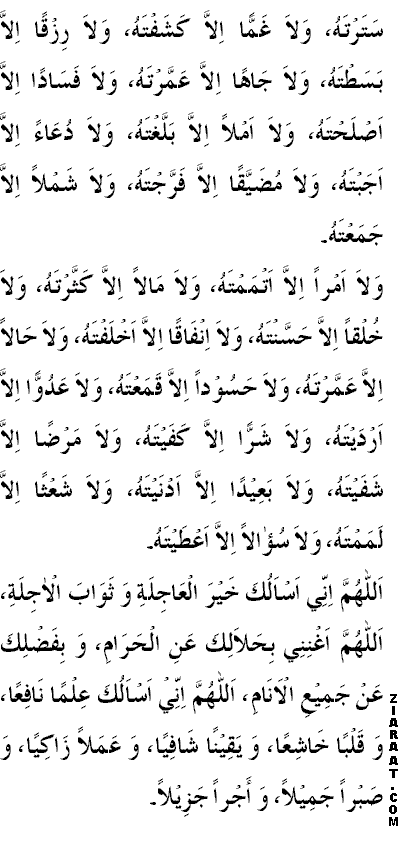 سَتَرْتَهُ، وَلاَ غَمًّا اِلاَّ كَشَفْتَهُ، وَلاَ رِزْقًا اِلاَّ
بَسَطْتَهُ، وَلاَ جَاهًا اِلاَّ عَمَّرْتَهُ، وَلاَ فَسَادًا اِلاَّ
اَصْلَحْتَهُ، وَلاَ اَمْلاً اِلاَّ بَلَّغْتَهُ، وَلاَ دُعَاءً اِلاَّ
اَجَبْتَهُ، وَلاَ مُضَيَّقًا اِلاَّ فَرَّجْتَهُ، وَلاَ شَمْلاً اِلاَّ
جَمَعْتَهُ۔
وَلاَ اَمْراً اِلاَّ اَتْمَمْتَهُ، وَلاَ مَالاً اِلاَّ كَثَّرْتَهُ، وَلاَ
خُلْقاً اِلاَّ حَسَّنْتَهُ، وَلاَ اِنْفَاقًا اِلاَّ اَخْلَفْتَهُ، وَلاَ حَالاً
اِلاَّ عَمَّرْتَهُ، وَلاَ حَسُوْداً اِلاَّ قَمَعْتَهُ، وَلاَ عَدُوًّا اِلاَّ
اَرْدَيْتَهُ، وَلاَ شَرًّا اِلاَّ كَفَيْتَهُ، وَلاَ مَرْضًا اِلاَّ
شَفَيْتَهُ، وَلاَ بَعِيْدًا اِلاَّ اَدْنَيْتَهُ، وَلاَ شَعْثًا اِلاَّ
لَمَمْتَهُ، وَلاَ سُؤَالاً اِلاَّ اَعْطَيْتَهُ۔
اَللّٰهُمَّ اِنِّي اَسْاَلُكَ خَيْرَ الْعَاجِلَةِ وَ ثَوَابَ الْاٰجِلَةِ،
اَللّٰهُمَّ اَغْنِنِي بِحَلاَلِكَ عَنِ الْحَرَامِ، وَ بِفَضْلِكَ
عَنْ جَمِيْعِ الْاَنَامِ، اَللّٰهُمَّ اِنِّيْ اَسْاَلُكَ عِلْمًا نَافِعًا،
وَ قَلْبًا خَاشِعًا، وَ يَقِيْنًا شَافِيًا، وَ عَمَلاً زَاكِيًا، وَ
صَبْراً جَمِيْلاً، وَ أَجْراً جَزِيْلاً۔
ZIARAAT.COM